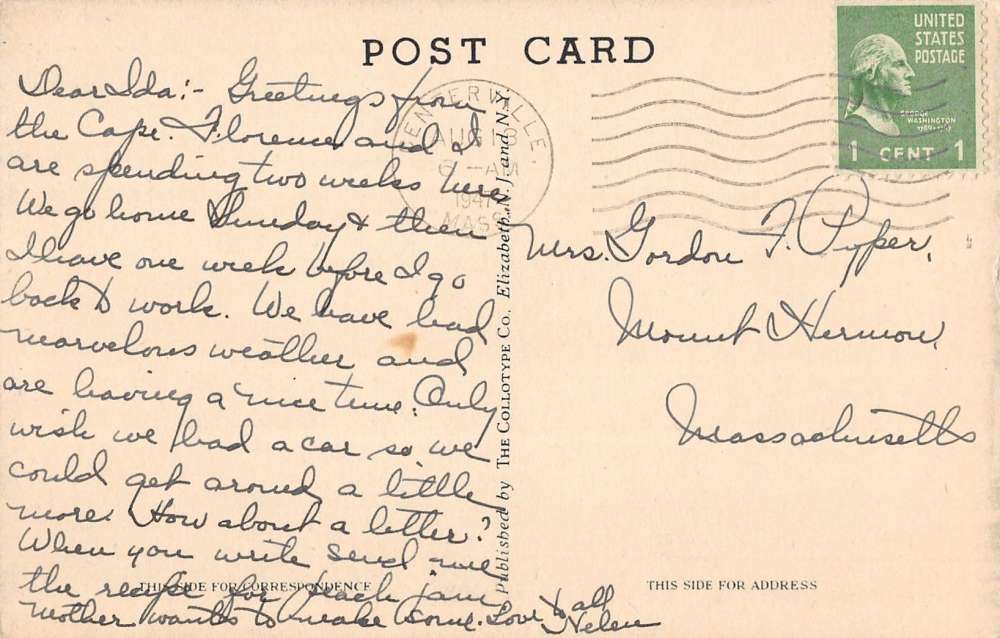 POST CARD
UNITED
STATES
POSTAGE
GEORGE
WASHINGTON
1789-1797
1 CENT 1
CENTERVILLE
AUG 13
6 - AM
1947
MASS.
Dear Ida:- Greetings from
the Cape. Florence and I
are spending two weeks here.
We go home Sunday & then
I have one week before I go
back to work. We have had
marvelous weather and
are having a nice time. Only
wish we had a car so we
could get around a little
more. How about a letter?
When you write send me
the recipe for peach jam
mother wants to make some. Love to all
Helen
Published by THE COLLOTYPE CO., Elizabeth, N. J. and N. Y.
Mrs. Gordon F. Pyper,
Mount Hermon,
Massachusetts
THIS SIDE FOR CORRESPONDENCE
THIS SIDE FOR ADDRESS